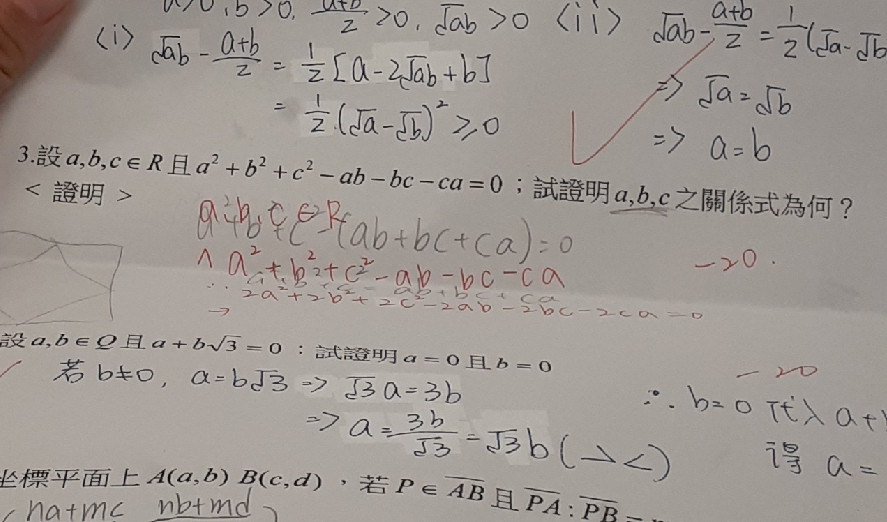 b>0, a+b/2 >0, √ab >0 <ii> √ab - a+b/2 = 1/2(√a-√b
<i> √ab - a+b/2 = 1/2[a-2√ab+b]
⇒ √a=√b
= 1/2(√a-√b)² ≥0
⇒ a=b
3.設 a,b,c∈R 且 a²+b²+c²-ab-bc-ca=0;試證明 a,b,c 之關係式為何?
< 證明 >
a²+b²+c²-(ab+bc+ca)=0
a²+b²+c²-ab-bc-ca
-20.
→ 2a²+2b²+2c²-2ab-2bc-2ca=0
設 a,b∈Q 且 a+b√3=0:試證明 a=0 且 b=0
若 b≠0, a=b√3 ⇒ √3a=3b
-20
∴ b=0 代入 a+
⇒ a=3b/√3=√3b(→←)
得 a=
坐標平面上 A(a,b) B(c,d),若 P∈AB 且 PA:PB=
(na+mc nb+md)